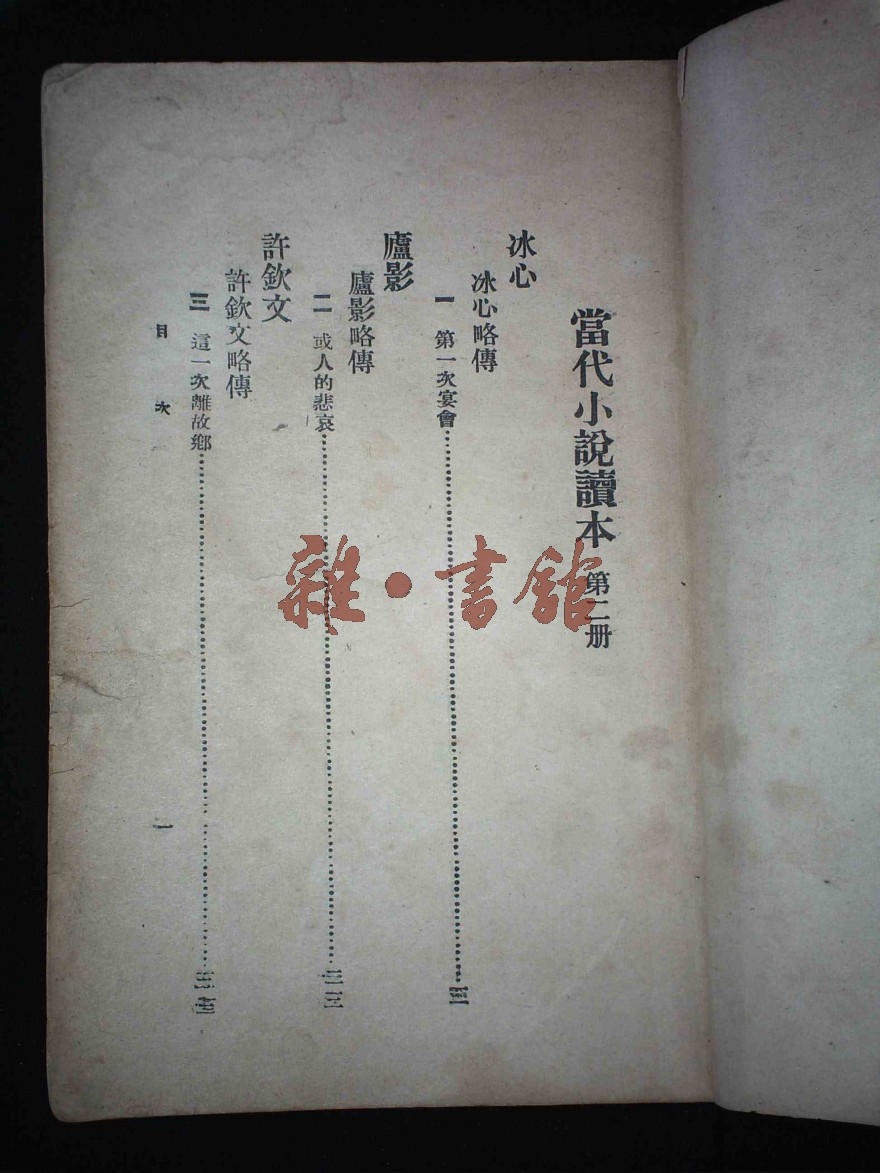 當代小說讀本 第二册
冰心
冰心略傳
一 第一次宴會
廬影
廬影略傳
二 或人的悲哀
許欽文
許欽文略傳
三 這一次離故鄉
目次 一
雜·書館